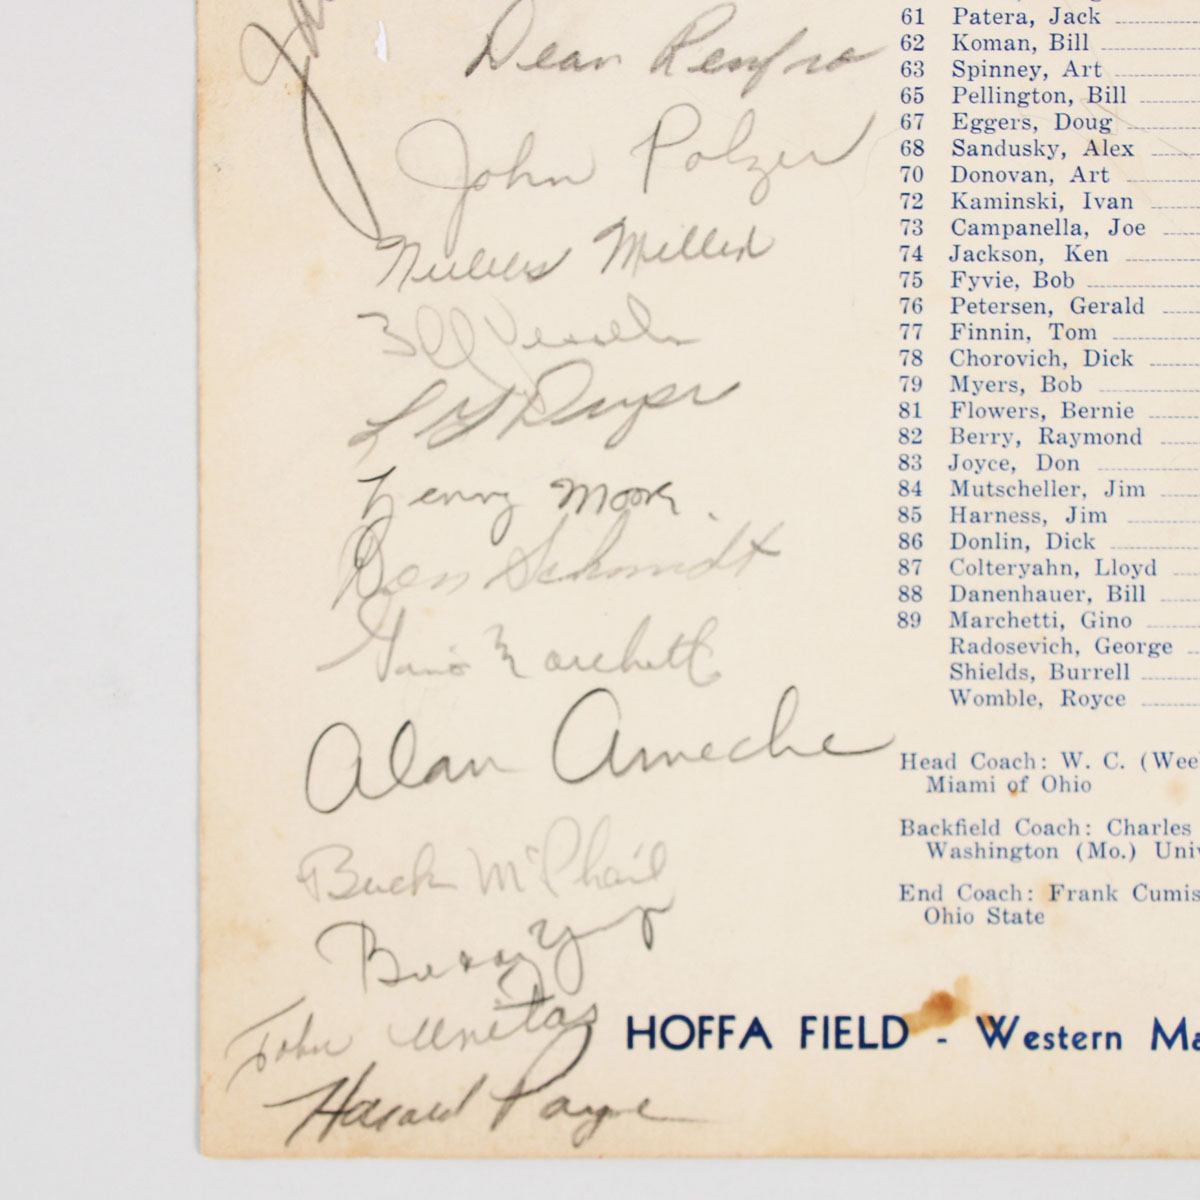 Dean Renfro
John Polzer
Bill Vessels
L G Dupre
Lenny Moore
Don Schmidt
Gino Marchetti
Alan Ameche
Buck McPhail
Buddy Young
John Unitas
Howard Payne
61 Patera, Jack
62 Koman, Bill
63 Spinney, Art
65 Pellington, Bill
67 Eggers, Doug
68 Sandusky, Alex
70 Donovan, Art
72 Kaminski, Ivan
73 Campanella, Joe
74 Jackson, Ken
75 Fyvie, Bob
76 Petersen, Gerald
77 Finnin, Tom
78 Chorovich, Dick
79 Myers, Bob
81 Flowers, Bernie
82 Berry, Raymond
83 Joyce, Don
84 Mutscheller, Jim
85 Harness, Jim
86 Donlin, Dick
87 Colteryahn, Lloyd
88 Danenhauer, Bill
89 Marchetti, Gino
Radosevich, George
Shields, Burrell
Womble, Royce
Head Coach: W. C. (Wee
Miami of Ohio
Backfield Coach: Charles
Washington (Mo.) Univ
End Coach: Frank Cumis
Ohio State
HOFFA FIELD - Western Ma